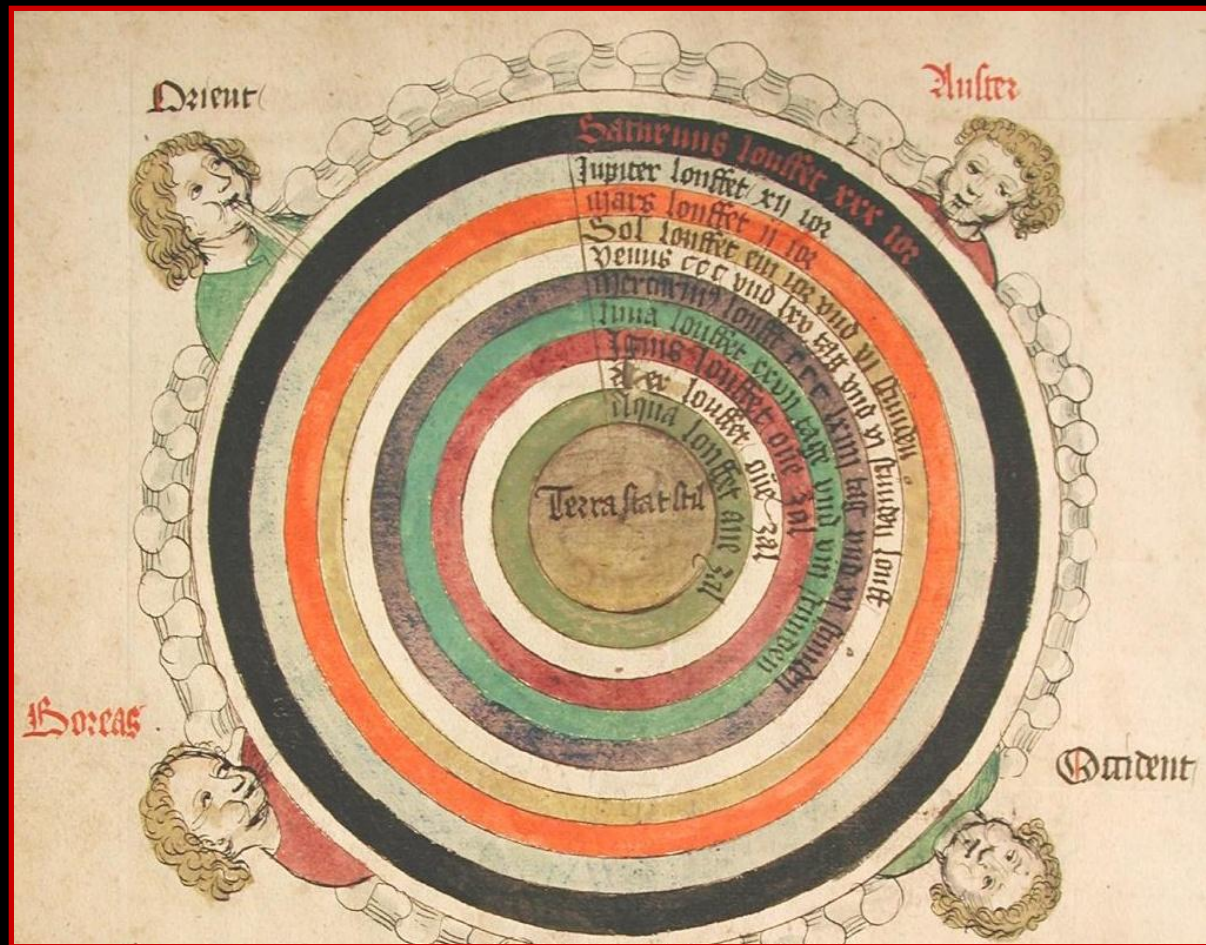 Orient
Auster
Saturnus louffet xxx ior
Jupiter louffet xij ior
mars louffet ij ior
Sol louffet ein ior vnd vj stunden
Venus ccc vnd lxv tag vnd vj stunden loufft
Mercurius loufft ccc lxvjjj tag vnd vj stunden
luna louffet xxvij tage vnd viij stunden
Ignis louffet one zal
Aer louffet one zal
Aqua louffet ane zal
Terra stat stil
Boreas
Occident